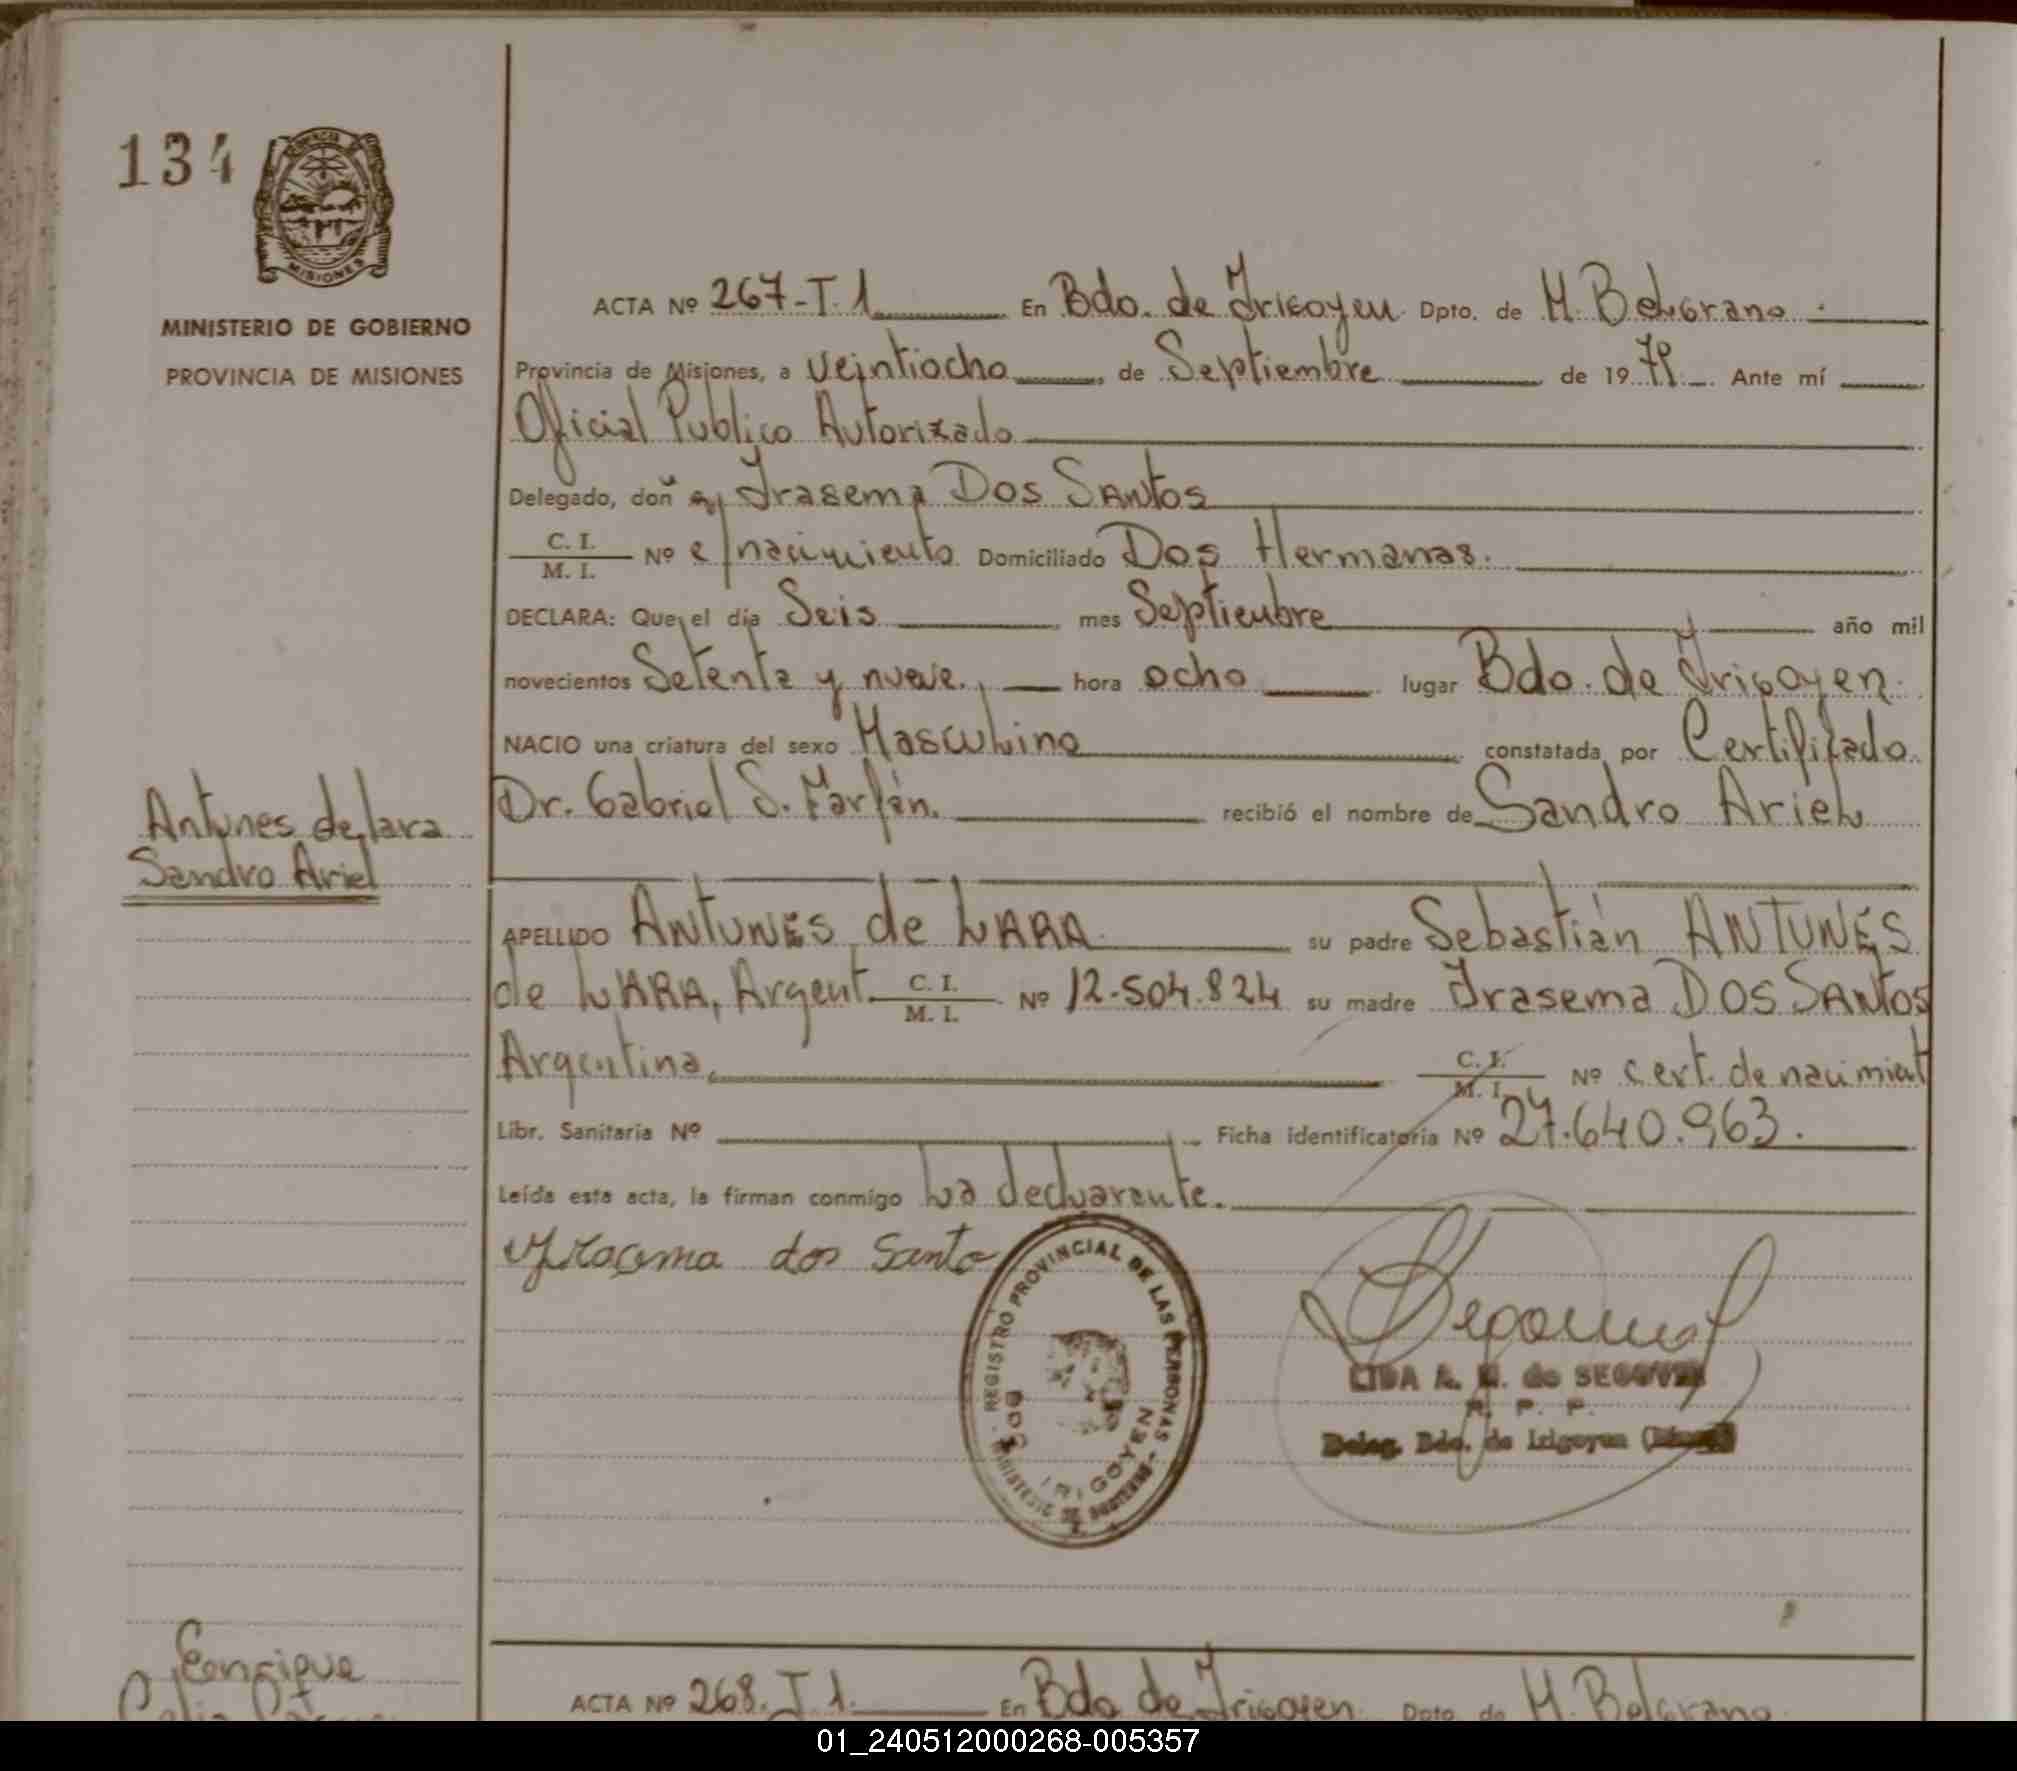 134
MISIONES
MINISTERIO DE GOBIERNO
PROVINCIA DE MISIONES
ACTA Nº 267-T.1 En Bdo. de Irigoyen Dpto. de M. Belgrano
Provincia de Misiones, a veintiocho de Septiembre de 1979. Ante mí
Oficial Publico Autorizado
Delegado, doña Irasema Dos Santos
C. I. / M. I. Nº c/nacimiento Domiciliado Dos Hermanas.
DECLARA: Que el día Seis mes Septiembre año mil
novecientos Setenta y nueve. hora ocho lugar Bdo. de Irigoyen
NACIO una criatura del sexo Masculino constatada por Certificado
Dr. Gabriel S. Farfán. recibió el nombre de Sandro Ariel
Antunes de lara
Sandro Ariel
APELLIDO ANTUNES de LARA su padre Sebastián ANTUNES
de LARA, Argent. C. I. / M. I. Nº 12.504.824 su madre Irasema DOS SANTOS
Argentina, C. I. / M. I. Nº cert. de nacimient
Libr. Sanitaria Nº Ficha identificatoria Nº 27.640.963.
Leída esta acta, la firman conmigo La declarante.
Iracema dos Santo
REGISTRO PROVINCIAL DE LAS PERSONAS - MINISTERIO DE GOBIERNO
BDO. IRIGOYEN
LIDA A. de SEGOVIA
P. P.
Deleg. Bdo. de Irigoyen
Enrique
ACTA Nº 268. T 1. En Bdo de Irigoyen Dpto. de M. Belgrano
01_240512000268-005357